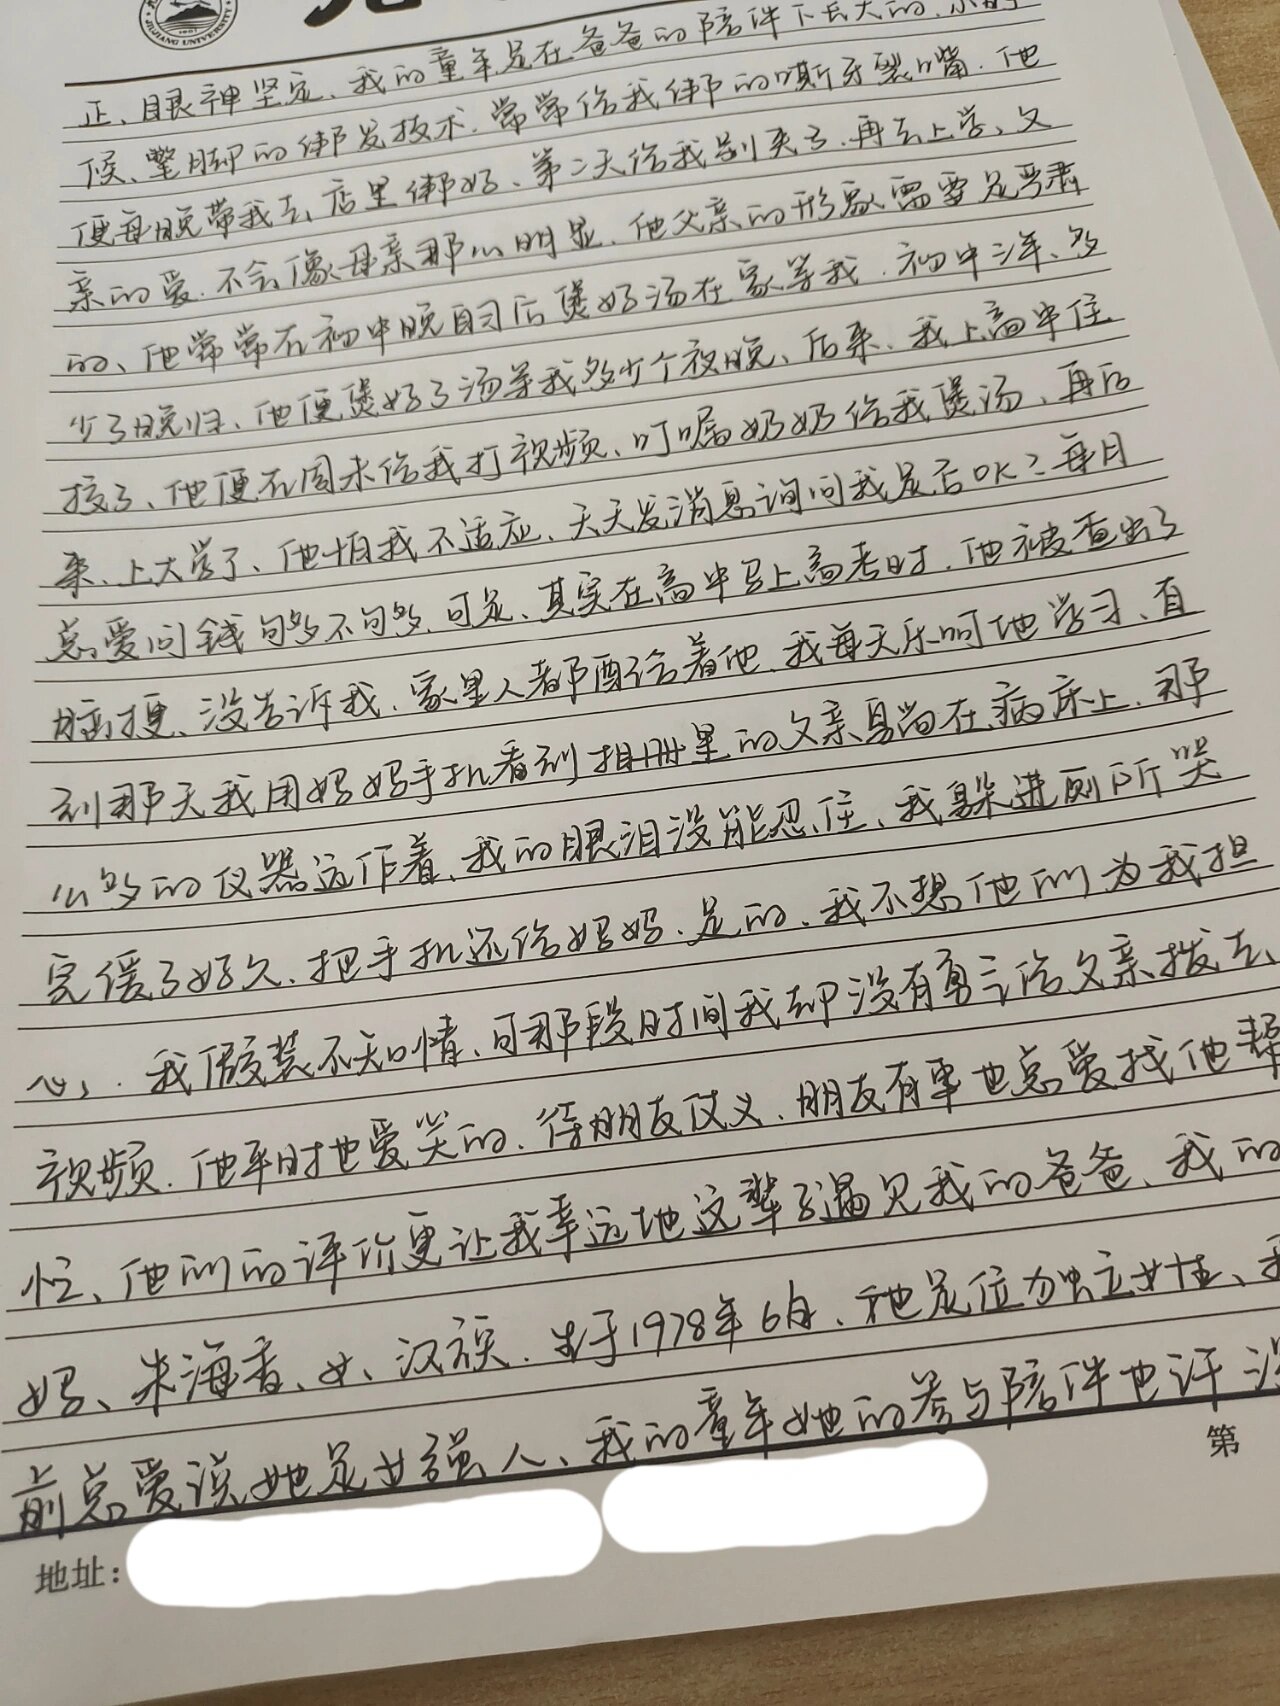 JIUJIANG UNIVERSITY
正、眼神坚定、我的童年是在爸爸的陪伴下长大的、小时
候、蹩脚的绑发技术、常常给我绑的呲牙裂嘴、他
便每晚带我去店里绑好、第二天给我别夹子、再去上学、父
亲的爱、不会像母亲那么明显、他父亲的形象需要是严肃
的、他常常在初中晚自习后煲好汤在家等我、初中三年、多
少了晚归、他便煲好了汤等我多少个夜晚、后来、我上高中住
校了、他便在周末给我打视频、叮嘱奶奶给我煲汤、再后
来、上大学了、他怕我不适应、天天发消息询问我是否OK?每月
总爱问钱句多不句多、可是、其实在高中马上高考时、他被查出了
脑梗、没告诉我、家里人都配合着他、我每天乐呵地学习、直
到那天我用妈妈手机看到相册里的父亲身躺在病床上、那
么多的仪器运作着、我的眼泪没能忍住、我躲进厕所哭
完缓了好久、把手机还给妈妈、是的、我不想他们为我担
心、我假装不知情、可那段时间我却没有勇气给父亲拨去、
视频、他平时也爱笑的、待朋友仗义、朋友有事也总爱找他帮
忙、他们的评价更让我幸运地这辈子遇见我的爸爸、我的
妈、朱海香、女、汉族、生于1978年6月、她是位独立女性、我
前总爱说她是女强人、我的童年她的参与陪伴也许没
第
地址: